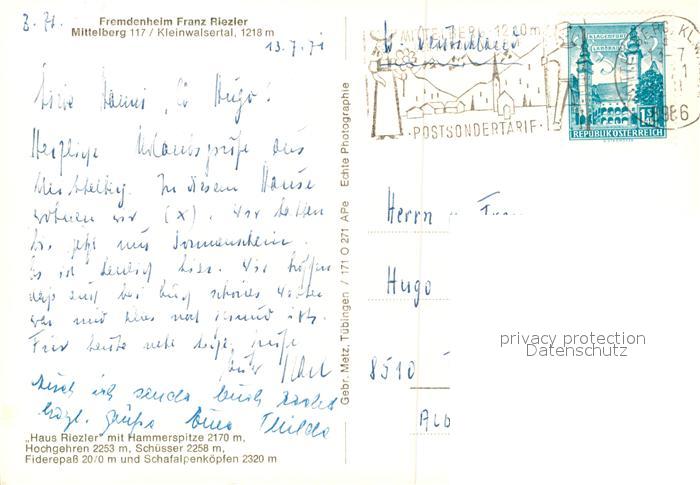 Fremdenheim Franz Riezler
Mittelberg 117 / Kleinwalsertal, 1218 m
13.7.71
Liebe Hanni, Hugo!
Herzliche Urlaubsgrüße aus
Mittelberg. In diesem Hause
wohnen wir (x). Wir hatten
bis jetzt nur Sonnenschein.
Es ist herrlich hier. Wir hoffen
daß auch bei Euch schönes Wetter
war und
Für heute
Auch ich sende Euch
herzl. Grüße Eure Thilda
„Haus Riezler" mit Hammerspitze 2170 m,
Hochgehren 2253 m, Schüsser 2258 m,
Fiderepaß 20/0 m und Schafalpenköpfen 2320 m
Gebr. Metz, Tübingen / 171 O 271 APe Echte Photographie
W. Deutschland
MITTELBERG 1220m
·POSTSONDERTARIF·
KLAGENFURT
LANDHAUS
REPUBLIK ÖSTERREICH
Herrn
Hugo
8510
privacy protection
Datenschutz